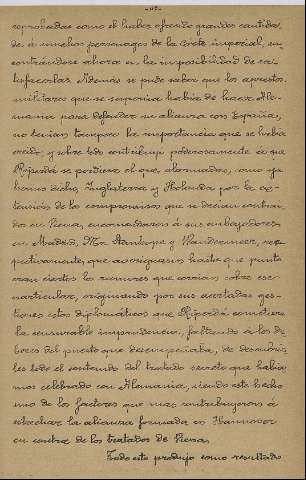 reprobadas como el haber ofrecido grandes cantida-
des á muchos personages de la Corte imperial, en-
contrándose ahora en la imposibilidad de sa-
tisfacerlas. Además se pudo saber que los aprestos
militares que se suponía había de hacer Ale-
mania para defender su alianza con España,
no tenían tampoco la importancia que se había
creido, y sobre todo contribuyó poderosamente á que
Riperdá se perdiera el que, alarmados, como ya
hemos dicho, Inglaterra y Holanda por la ex-
tensión de los compromisos que se decían contraí-
dos en Viena, encomendaron á sus embajadores
en Madrid, Mr. Stanhope y Vandermeer, res-
pectivamente, que averiguasen hasta que punto
eran ciertos los rumores que corrían sobre ese
particular, originando por sus acertadas ges-
tiones estos diplomáticos que Riperdá cometiera
la censurable imprudencia, faltando á los de-
beres del puesto que desempeñaba, de descubrir-
les todo el contenido del tratado secreto que había-
mos celebrado con Alemania, siendo este hecho
uno de los factores que mas contribuyeron á
estrechar la alianza formada en Hannover
en contra de los tratados de Viena.
Todo esto produjo como resultado